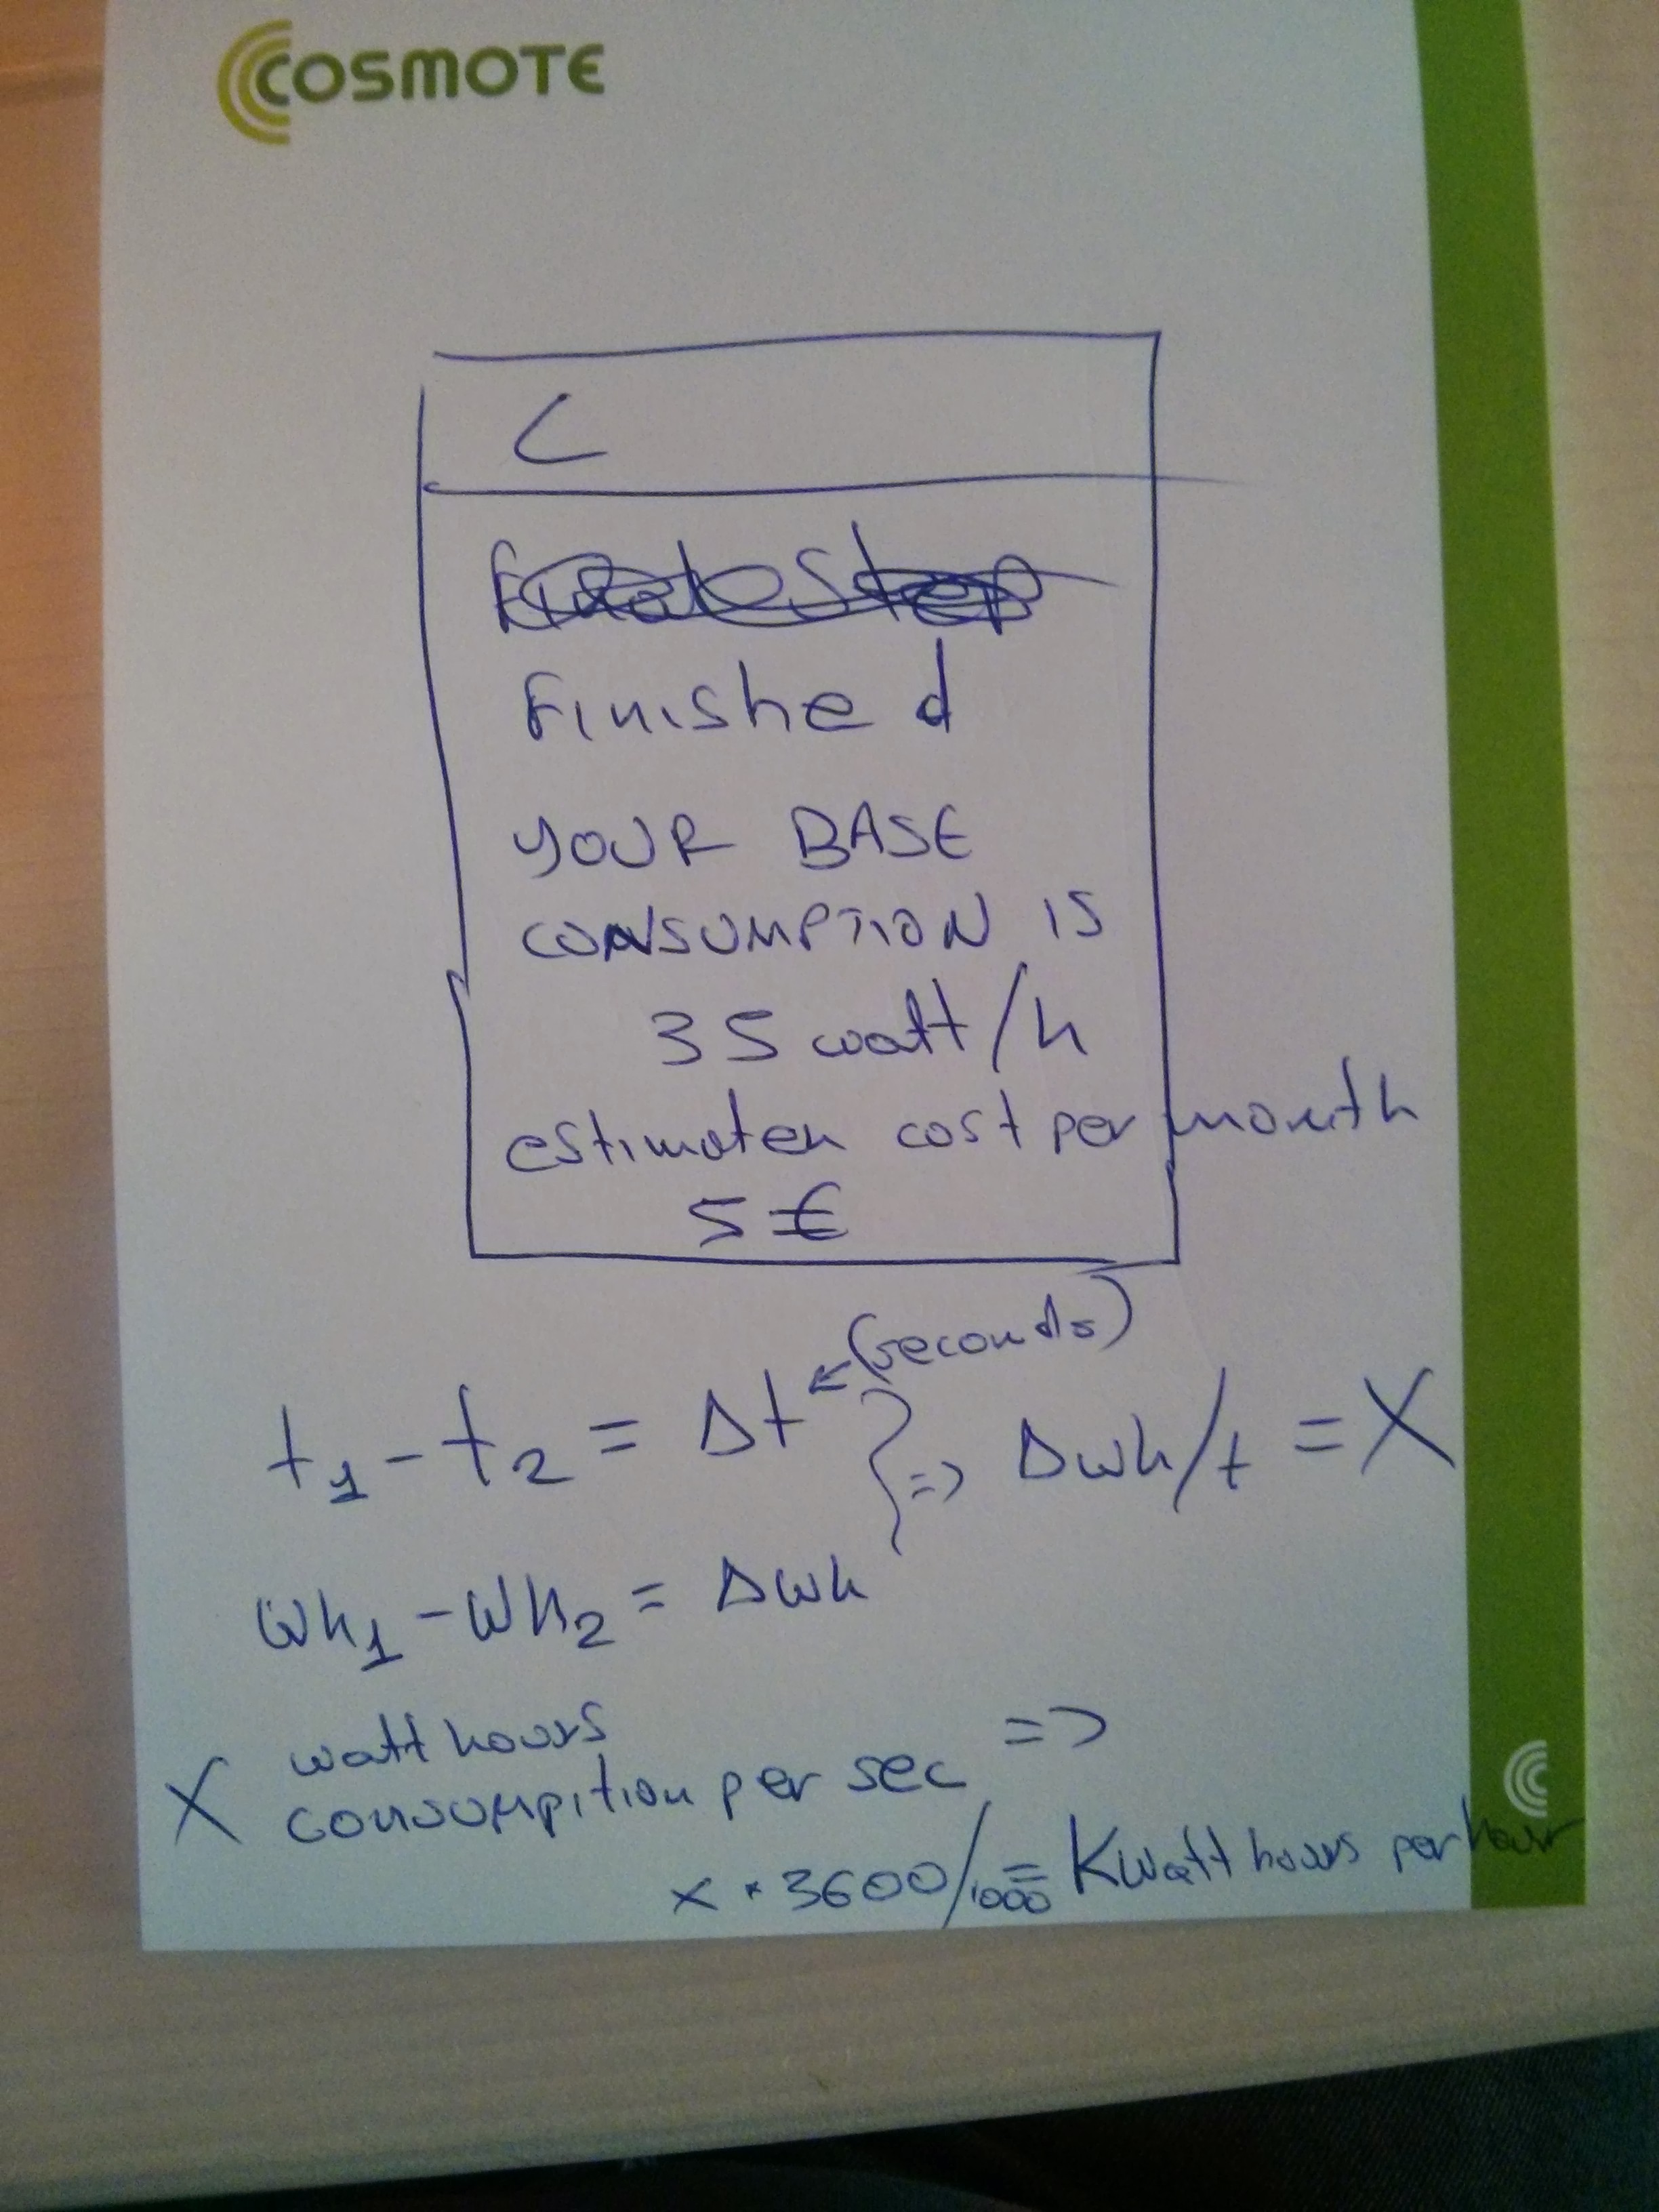 COSMOTE
Finished
YOUR BASE
CONSUMPTION IS
35 watt/h
estimaten cost per month
5 €
(seconds)
t1 - t2 = Δt } => Δwh/t = X
Wh1 - Wh2 = Δwh
watt hours
X consumpition per sec =>
x * 3600/1000 = Kwatt hours per hour